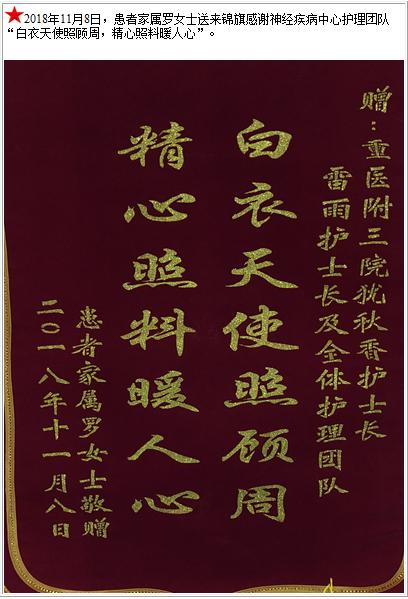 2018年11月8日，患者家属罗女士送来锦旗感谢神经疾病中心护理团队
“白衣天使照顾周，精心照料暖人心”。
赠：重医附三院犹秋香护士长
雷雨护士长及全体护理团队
白衣天使照顾周
精心照料暖人心
患者家属罗女士敬赠
二〇一八年十一月八日